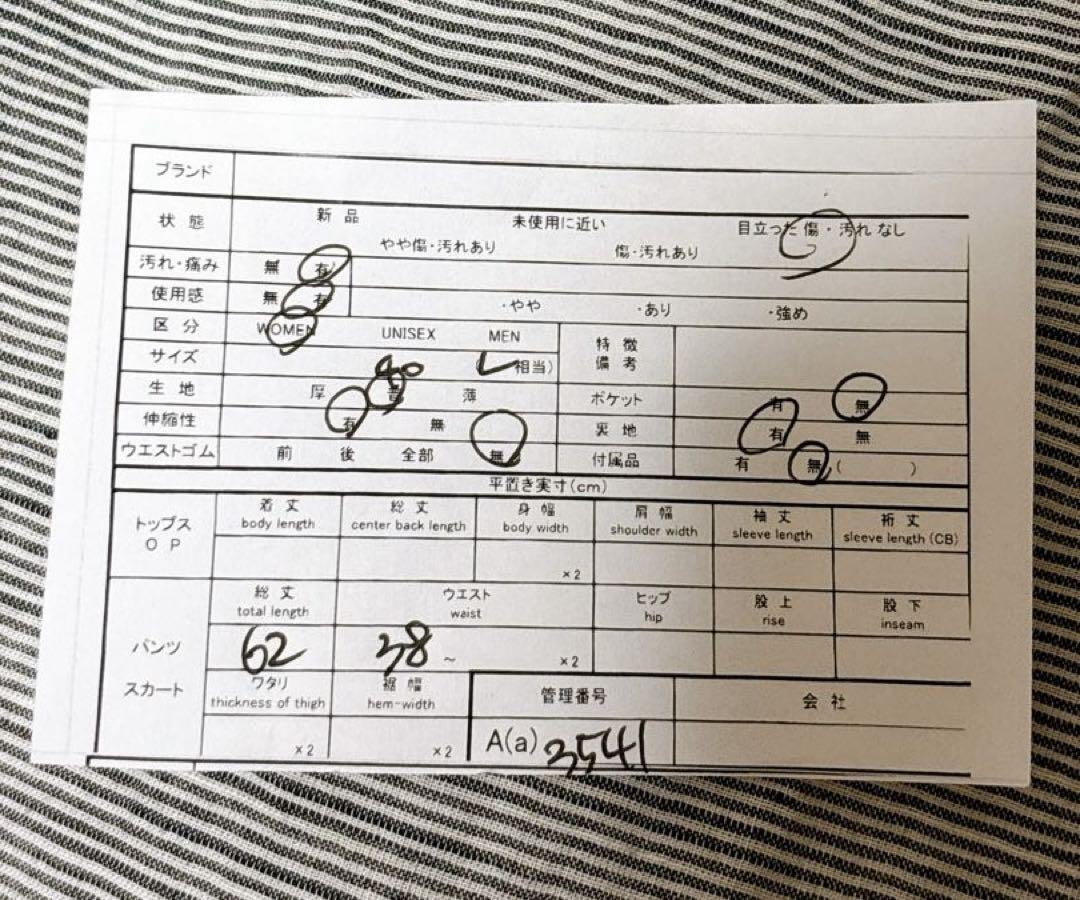 ブランド
状態 新品 未使用に近い 目立った傷・汚れなし
やや傷・汚れあり 傷・汚れあり
汚れ・痛み 無 有
使用感 無 有 ・やや ・あり ・強め
区分 WOMEN UNISEX MEN 特徴
備考
サイズ 40 L 相当)
生地 厚 普 薄 ポケット 有 無
伸縮性 有 無 裏地 有 無
ウエストゴム 前 後 全部 無 付属品 有 無 ( )
平置き実寸(cm)
トップス
OP
着丈 総丈 身幅 肩幅 袖丈 裄丈
body length center back length body width shoulder width sleeve length sleeve length (CB)
×2
パンツ
スカート
総丈 ウエスト ヒップ 股上 股下
total length waist hip rise inseam
62 38 ~ ×2
ワタリ 裾幅 管理番号 会社
thickness of thigh hem-width
×2 ×2 A(a) 3541